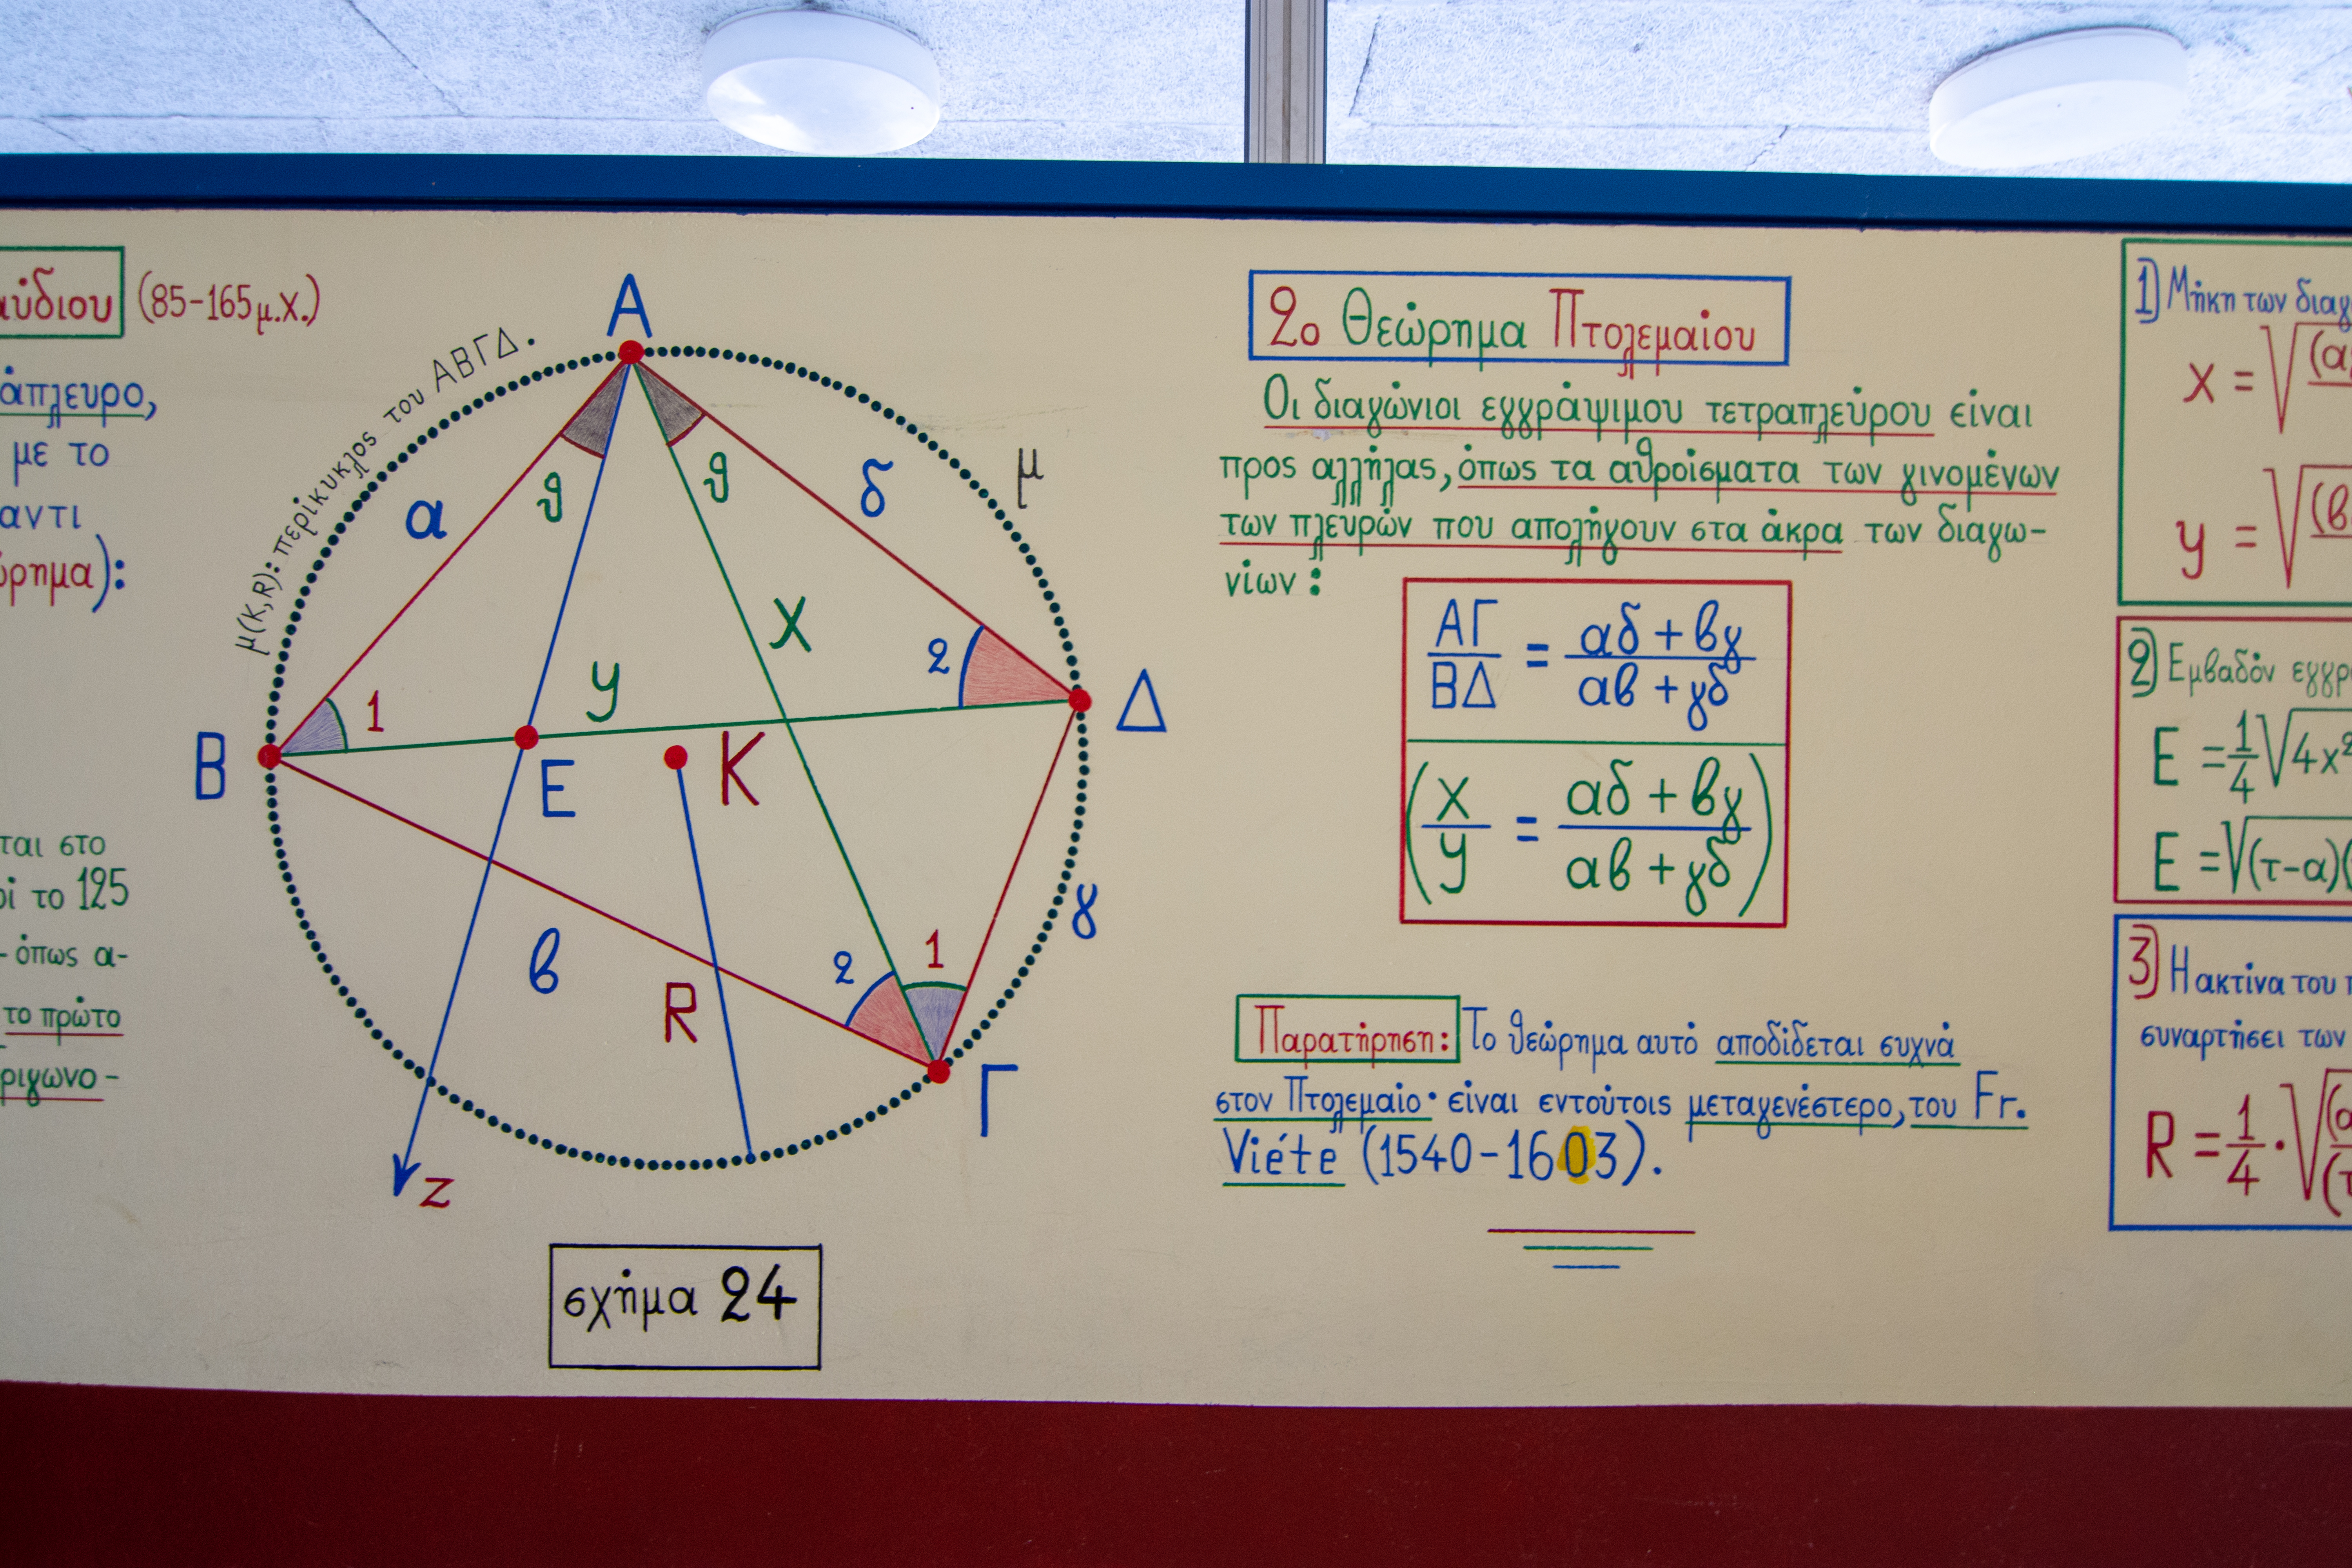 αύδιου (85-165 μ.Χ.)
άπλευρο,
με το
αντι
ώρημα):
ται στο
οί το 125
- όπως α-
το πρώτο
ριγωνο-
μ(Κ,R): περίκυκλος του ΑΒΓΔ.
Α
α
θ
θ
δ
μ
x
y
1
2
Β
Ε
Κ
Δ
β
R
2
1
γ
Γ
z
σχήμα 24
2ο Θεώρημα Πτολεμαίου
Οι διαγώνιοι εγγράψιμου τετραπλεύρου είναι
προς αλλήλας, όπως τα αθροίσματα των γινομένων
των πλευρών που απολήγουν στα άκρα των διαγω-
νίων:
ΑΓ/ΒΔ = αδ + βγ/αβ + γδ
(x/y = αδ + βγ/αβ + γδ)
Παρατήρηση: Το θεώρημα αυτό αποδίδεται συχνά
στον Πτολεμαίο· είναι εντούτοις μεταγενέστερο, του Fr.
Viéte (1540-1603).
1) Μήκη των διαγ
x = √(α
y = √(β
2) Εμβαδόν εγγρ
Ε = 1/4 √4x²
Ε = √(τ-α)(
3) Η ακτίνα του
συναρτήσει των
R = 1/4 · √(α/(τ